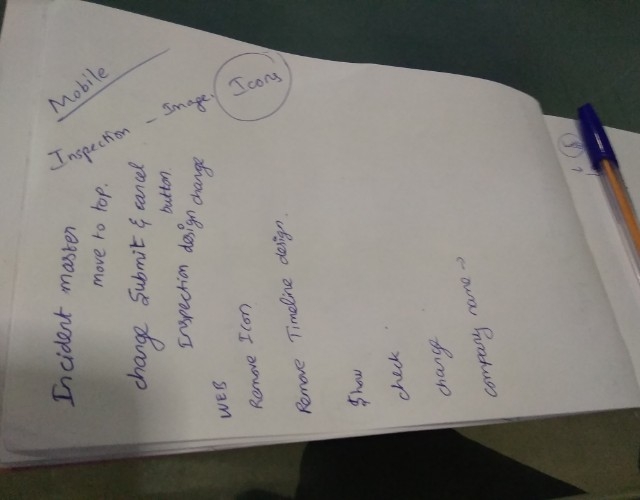 Mobile
Inspection - Image.
Icons
Incident master
move to top.
change Submit & cancel
button.
Inspection design change
WEB
Remove Icon
Remove Timeline design.
Show
check
change
company name →